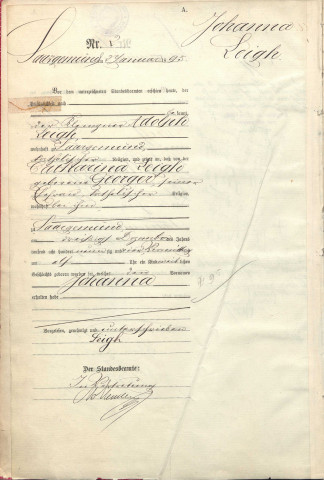 A.
Johanna
Leigh
Nr.
Saargemünd
Vor dem unterzeichneten Standesbeamten erschien heute, der
Persönlichkeit nach
kannt,
der Klempner Adolph
Leigh
wohnhaft Saargemünd
katholischer Religion, und zeigte an, daß von der
Catharina Leigh
geborene Georger, seiner
Ehefrau katholischer Religion,
wohnhaft bei ihm
zu Saargemünd
am Dezember des Jahres
tausend acht hundert neunzig und vier Vormittag
um elf Uhr ein Kind weiblichen
Geschlechts geboren worden sei, welches den Vornamen
Johanna
erhalten habe
Vorgelesen, genehmigt und unterschrieben
Leigh
Der Standesbeamte:
In Vertretung